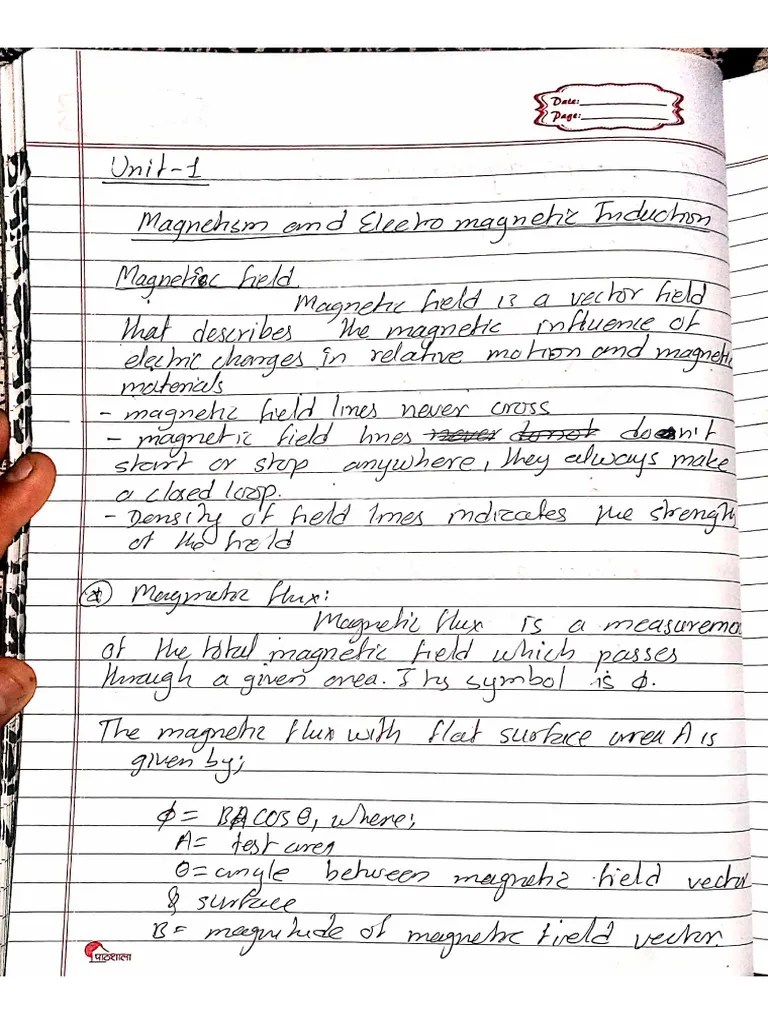 Date:
Page:
Unit-1
Magnetism and Electro magnetic Induction
Magnetic field.
Magnetic field is a vector field
that describes the magnetic influence of
electric charges in relative motion and magnetic
materials
- magnetic field lines never cross
- magnetic field lines never donot doesn't
start or stop anywhere, they always make
a closed loop.
- Density of field lines indicates the strength
of the field
* Magnetic flux:
Magnetic flux is a measureme
of the total magnetic field which passes
through a given area. Its symbol is φ.
The magnetic flux with flat surface area A is
given by;
φ = BA cos θ, where;
A = test area
θ = angle between magnetic field vector
& surface
B = magnitude of magnetic field vector.
पाठशाला